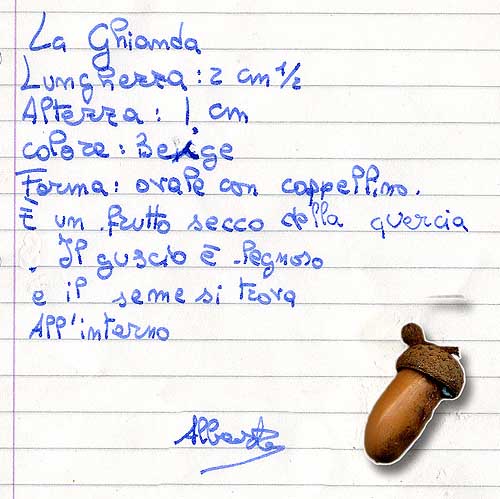 La Ghianda
Lunghezza: 2 cm 1/2
Altezza: 1 cm
colore: Beige
Forma: ovale con cappellino.
È un frutto secco della quercia
. Il guscio è legnoso
e il seme si trova
All'interno